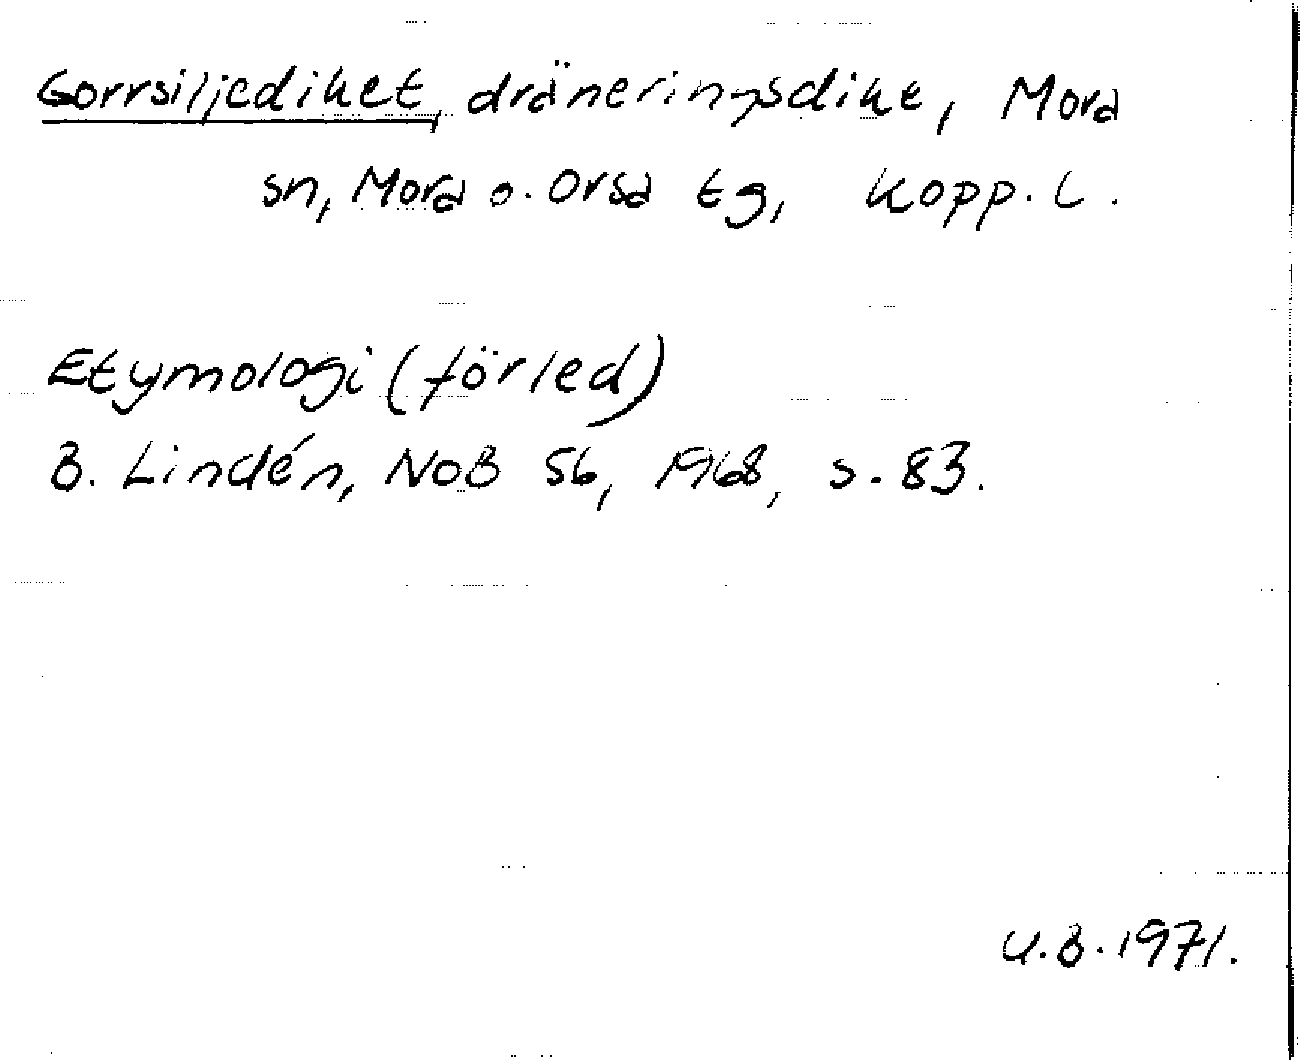 Gorrsiljediket, dräneringsdike, Mora
sn, Mora o. Orsa tg, Kopp. l.
Etymologi (förled)
B. Lindén, NoB 56, 1968, s. 83.
U.B. 1971.